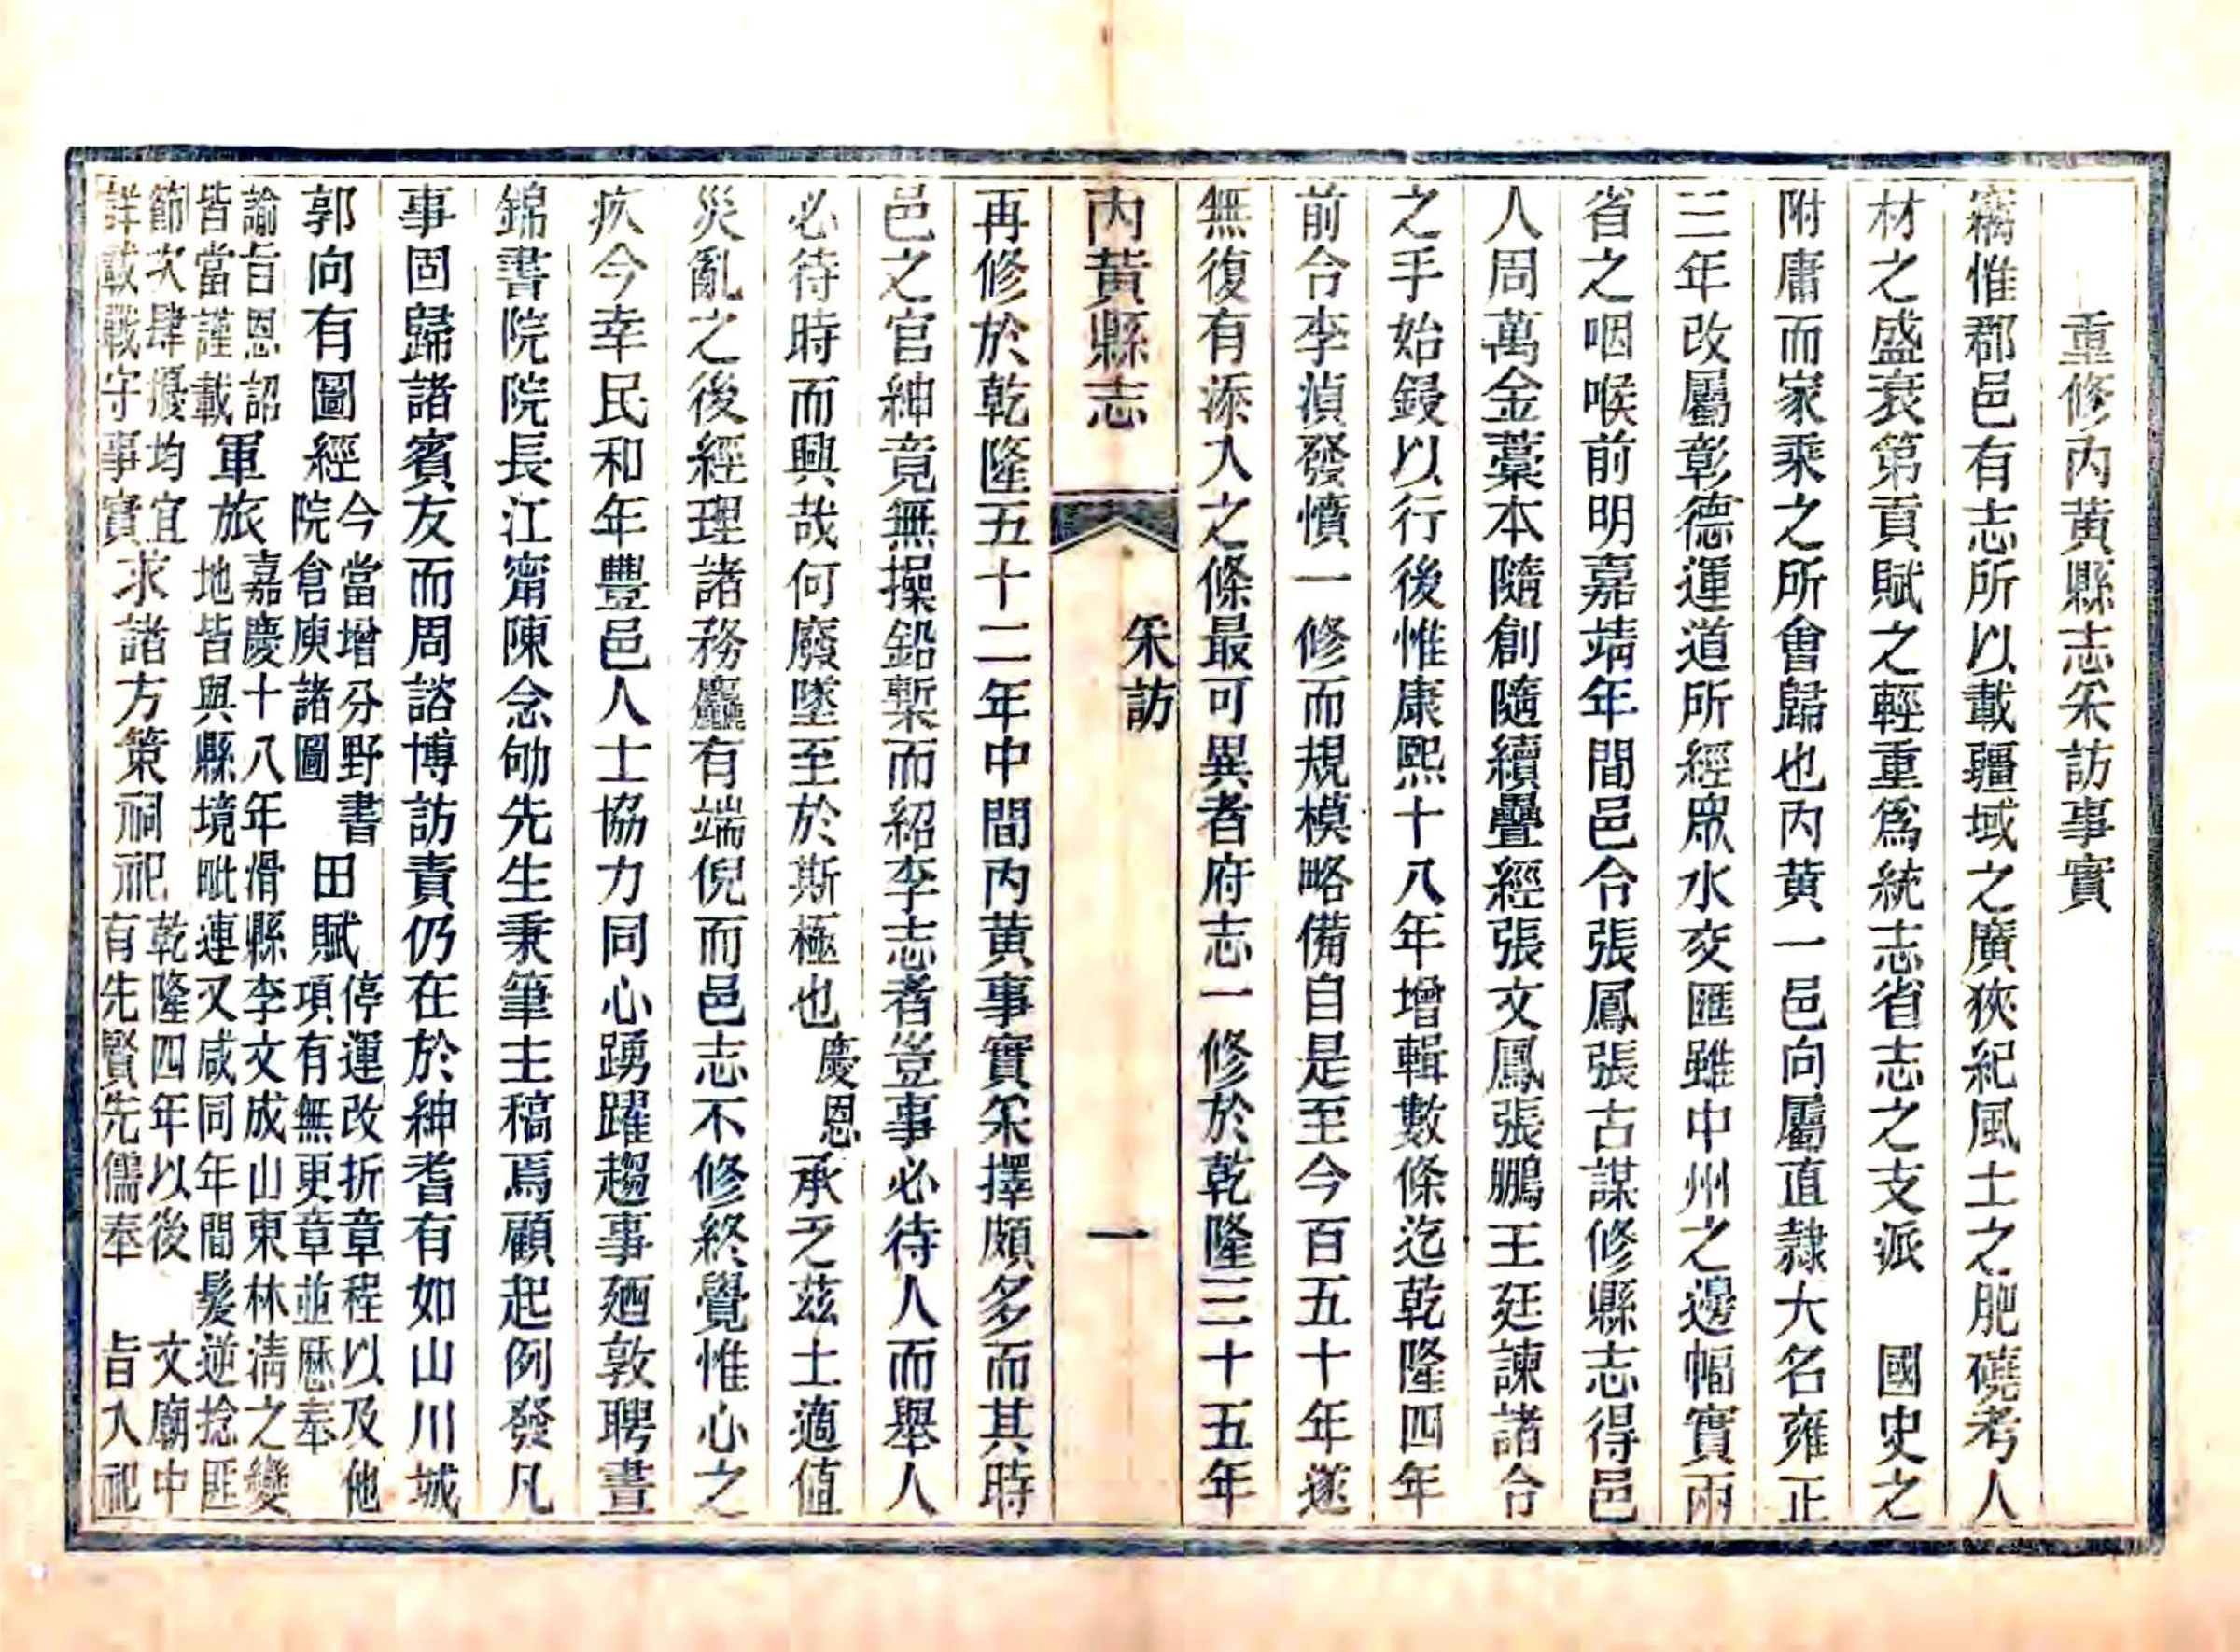 重修內黄縣志采訪事實
竊惟郡邑有志所以載疆域之廣狹紀風土之肥磽考人
材之盛衰第貢賦之輕重爲統志省志之支派　國史之
附庸而家乘之所會歸也內黄一邑向屬直隸大名雍正
三年改屬彰德運道所經眾水交匯雖中州之邊幅實兩
省之咽喉前明嘉靖年間邑令張鳳張古謀修縣志得邑
人周萬金藁本隨創隨續疊經張文鳳張鵬王廷諫諸令
之手始鋟以行後惟康熙十八年增輯數條迄乾隆四年
前令李湞發憤一修而規模略備自是至今百五十年遂
無復有添入之條最可異者府志一修於乾隆三十五年
內黄縣志
采訪
一
再修於乾隆五十二年中間內黄事實采擇頗多而其時
邑之官紳竟無操鉛槧而紹李志者豈事必待人而舉人
必待時而興哉何廢墜至於斯極也慶恩承乏茲土適值
災亂之後經理諸務麤有端倪而邑志不修終覺惟心之
疚今幸民和年豐邑人士協力同心踴躍趨事廼敦聘晝
錦書院院長江甯陳念劬先生秉筆主稿焉顧起例發凡
事固歸諸賓友而周諮博訪責仍在於紳耆有如山川城
郭向有圖經今當增分野書院倉庾諸圖田賦停運改折章程以及他項有無更章並歷奉
諭旨恩詔皆當謹載軍旅嘉慶十八年滑縣李文成山東林淸之變地皆與縣境毗連又咸同年間髮逆捻匪
節次肆擾均宜詳載戰守事實求諸方策祠祀乾隆四年以後　文廟中有先賢先儒奉　旨入祀